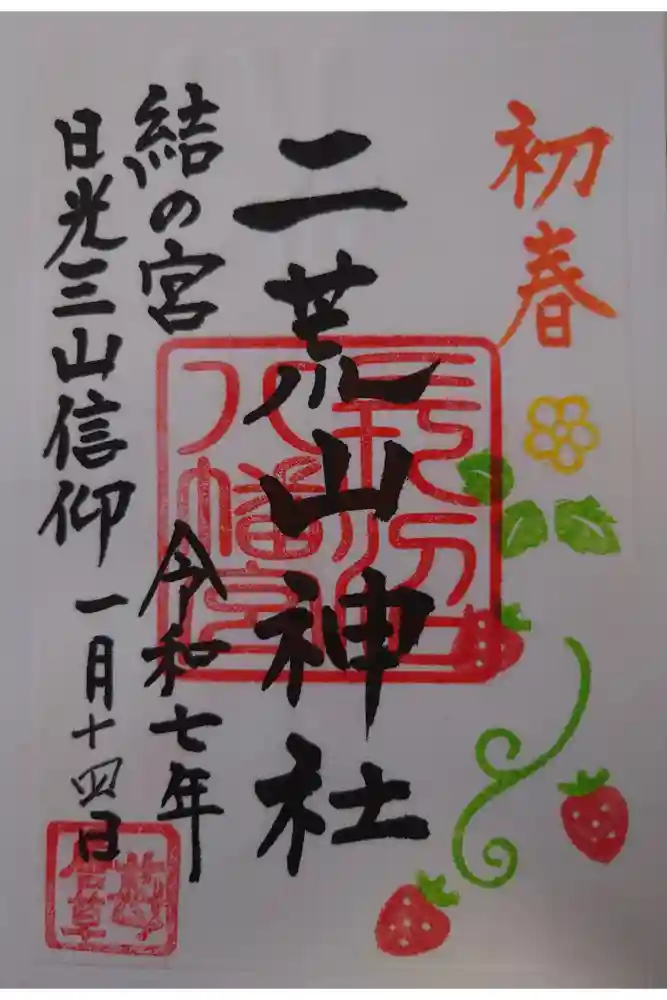 初春
二荒山神社
結の宮
令和七年
日光三山信仰
一月十四日
長沼
八幡宮